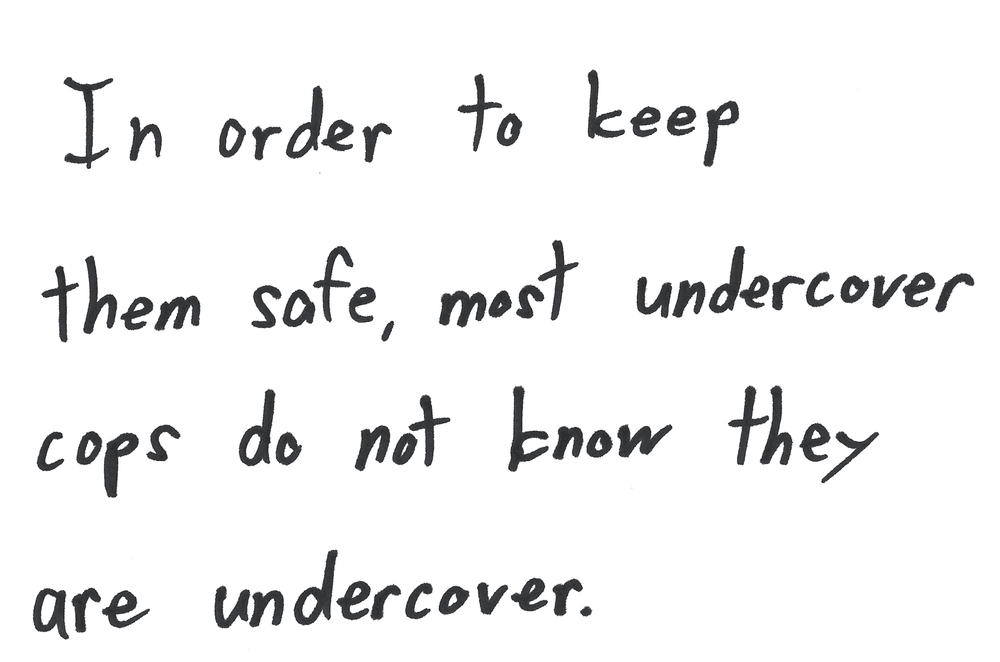 In order to keep
them safe, most undercover
cops do not know they
are undercover.